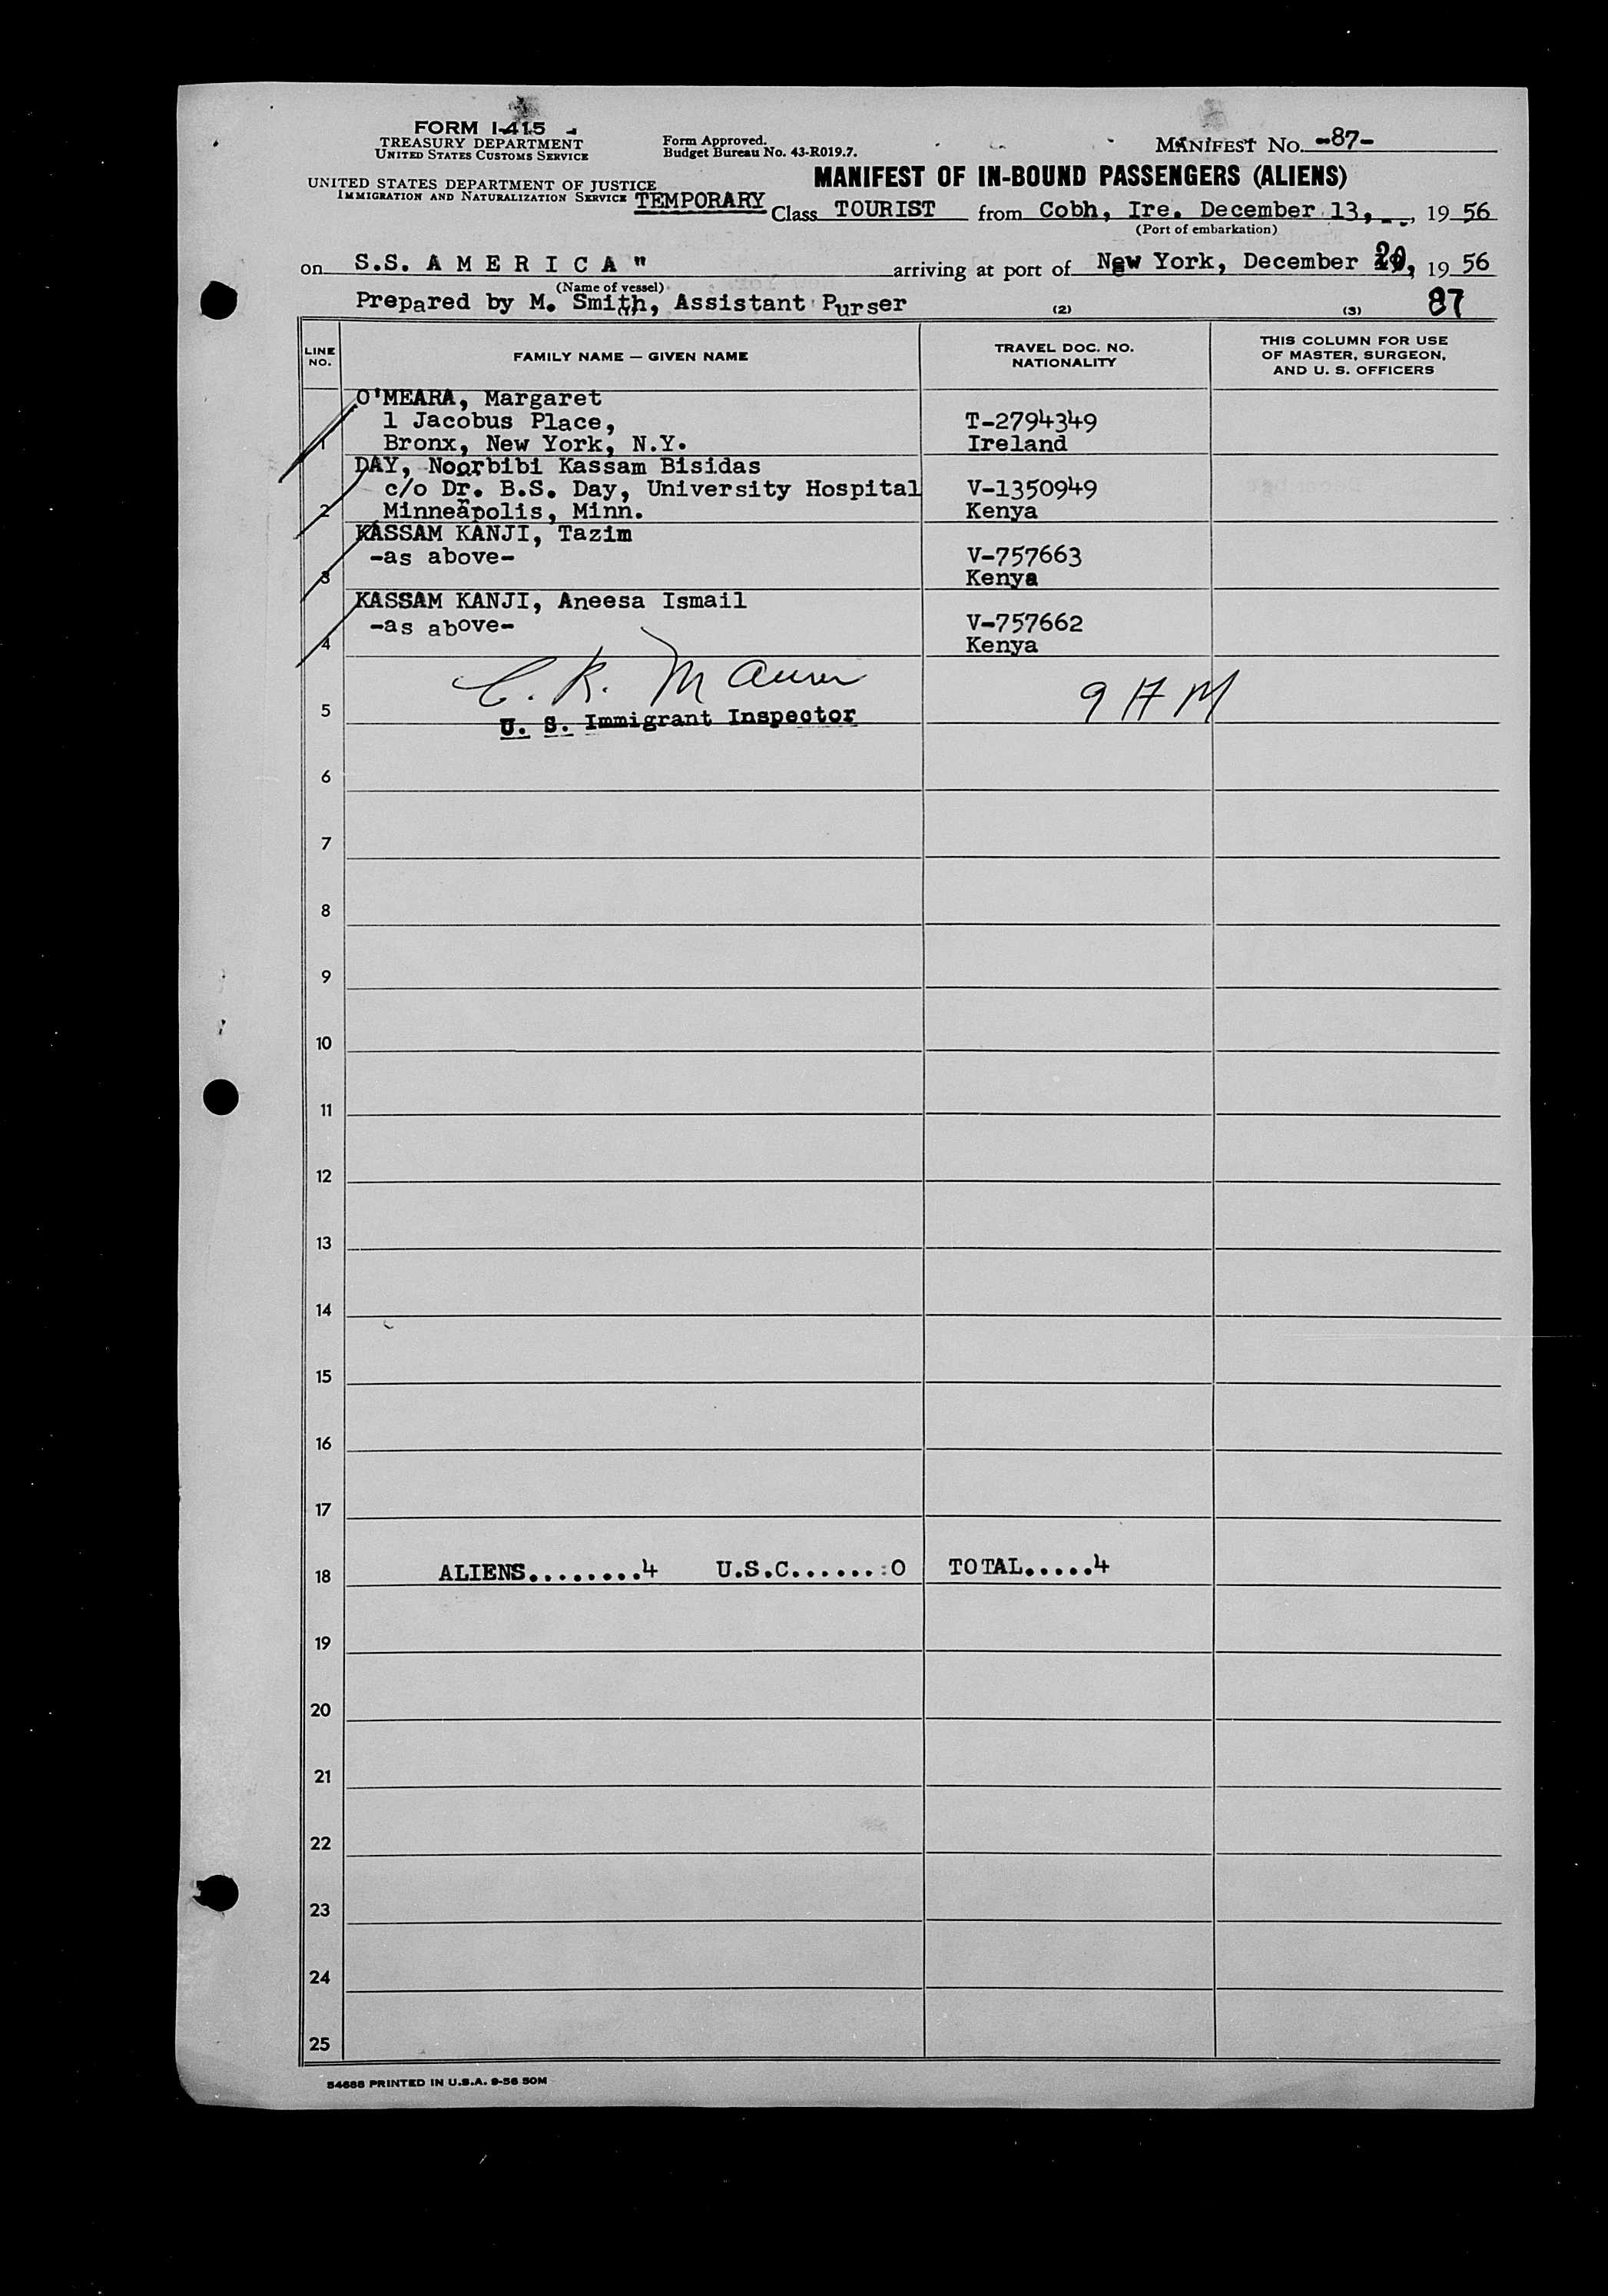 FORM I-415
TREASURY DEPARTMENT
UNITED STATES CUSTOMS SERVICE
Form Approved.
Budget Bureau No. 43-R019.7.
MANIFEST NO. -87-
UNITED STATES DEPARTMENT OF JUSTICE
IMMIGRATION AND NATURALIZATION SERVICE
MANIFEST OF IN-BOUND PASSENGERS (ALIENS)
TEMPORARY Class TOURIST from Cobh, Ire. December 13, 19 56
(Port of embarkation)
on S.S. A M E R I C A " arriving at port of New York, December 20, 19 56
(Name of vessel)
Prepared by M. Smith, Assistant Purser (2) (3) 87
LINE NO.
FAMILY NAME — GIVEN NAME
TRAVEL DOC. NO.
NATIONALITY
THIS COLUMN FOR USE
OF MASTER, SURGEON,
AND U. S. OFFICERS
O'MEARA, Margaret
1 Jacobus Place, T-2794349
1 Bronx, New York, N.Y. Ireland
DAY, Noorbibi Kassam Bisidas
c/o Dr. B.S. Day, University Hospital V-1350949
2 Minneapolis, Minn. Kenya
KASSAM KANJI, Tazim
-as above- V-757663
3 Kenya
KASSAM KANJI, Aneesa Ismail
-as above- V-757662
4 Kenya
C. R. Maurer 9 AM
5
U. S. Immigrant Inspector
6
7
8
9
10
11
12
13
14
15
16
17
18 ALIENS........4 U.S.C......:0 TOTAL.....4
19
20
21
22
23
24
25
54686 PRINTED IN U.S.A. 9-56 50M